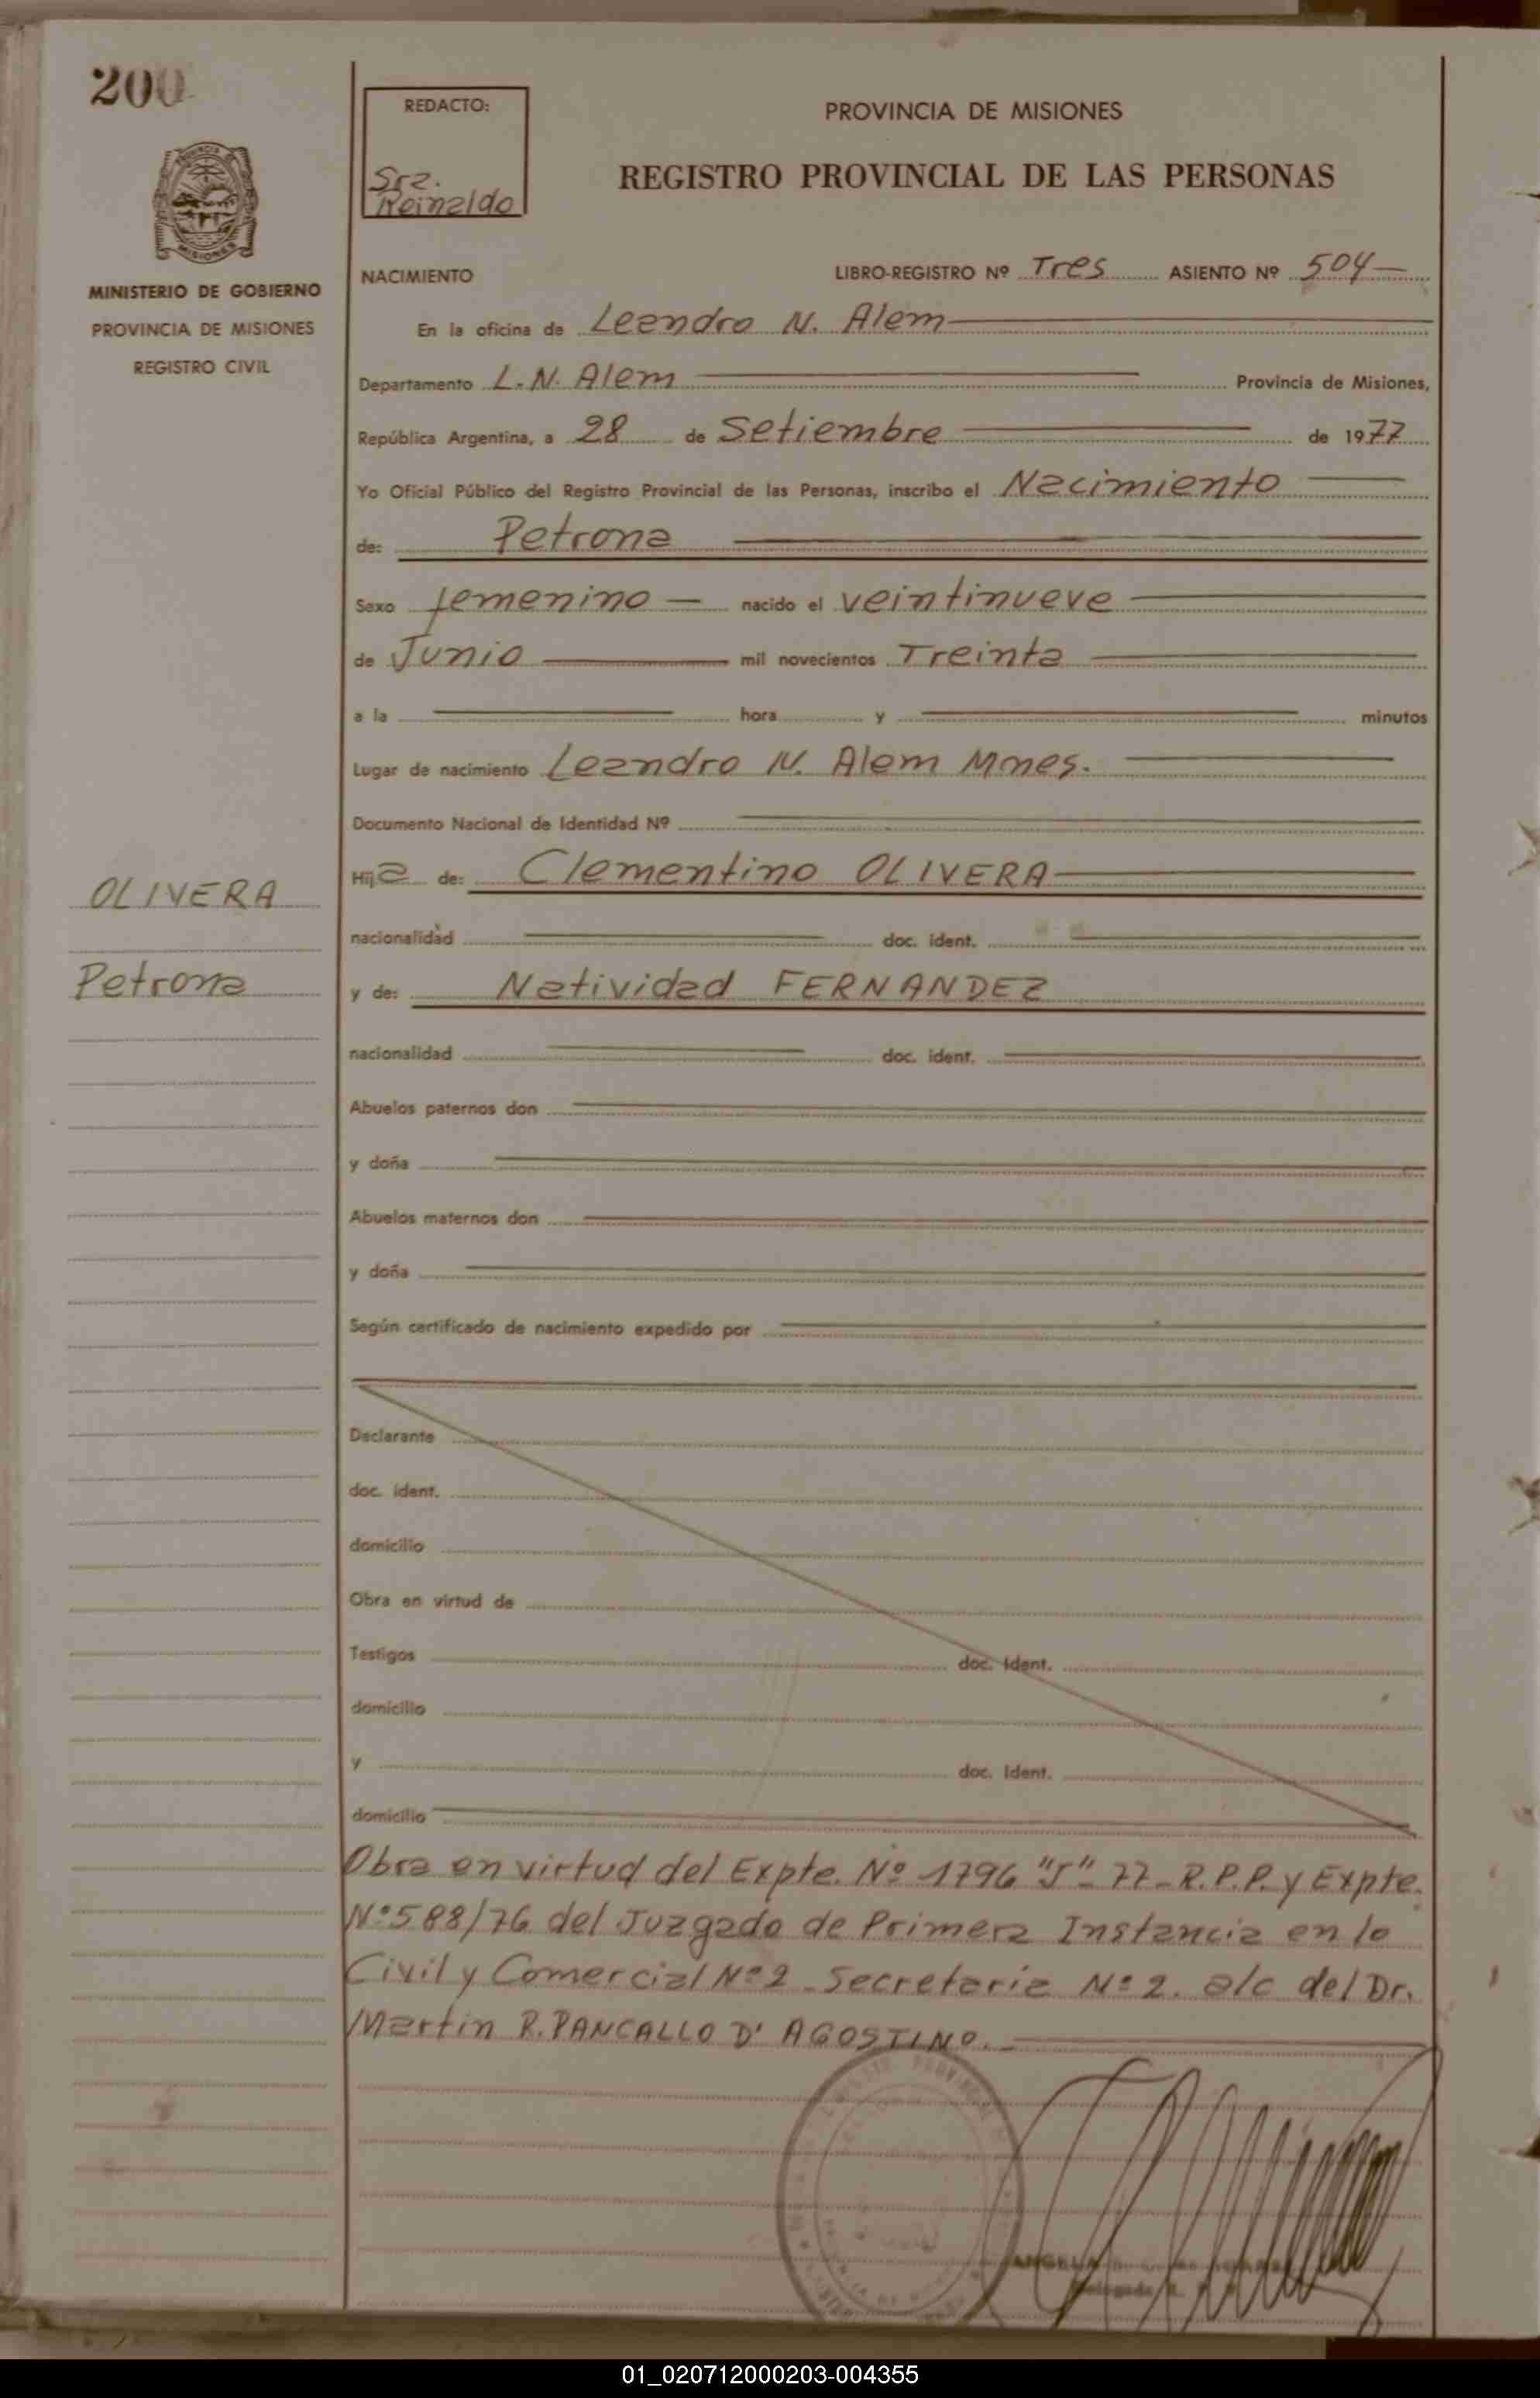 200
REDACTO:
Sra.
Reinaldo
PROVINCIA DE MISIONES
REGISTRO PROVINCIAL DE LAS PERSONAS
MINISTERIO DE GOBIERNO
PROVINCIA DE MISIONES
REGISTRO CIVIL
NACIMIENTO LIBRO-REGISTRO Nº Tres ASIENTO Nº 504
En la oficina de Leandro N. Alem
Departamento L. N. Alem Provincia de Misiones,
República Argentina, a 28 de Setiembre de 1977
Yo Oficial Público del Registro Provincial de las Personas, inscribo el Nacimiento
de: Petrona
Sexo femenino nacido el veintinueve
de Junio mil novecientos Treinta
a la hora y minutos
Lugar de nacimiento Leandro N. Alem Mnes.
Documento Nacional de Identidad Nº
Hija de: Clementino OLIVERA
OLIVERA
nacionalidad doc. ident.
Petrona
y de: Natividad FERNANDEZ
nacionalidad doc. ident.
Abuelos paternos don
y doña
Abuelos maternos don
y doña
Según certificado de nacimiento expedido por
Declarante
doc. ident.
domicilio
Obra en virtud de
Testigos doc. ident.
domicilio
y doc. ident.
domicilio
Obra en virtud del Expte. Nº 1796 "J"- 77- R.P.P. y Expte.
Nº 588/76 del Juzgado de Primera Instancia en lo
Civil y Comercial Nº 2 - Secretaria Nº 2. a/c del Dr.
Martin R. PANCALLO D' AGOSTINO.
01_020712000203-004355